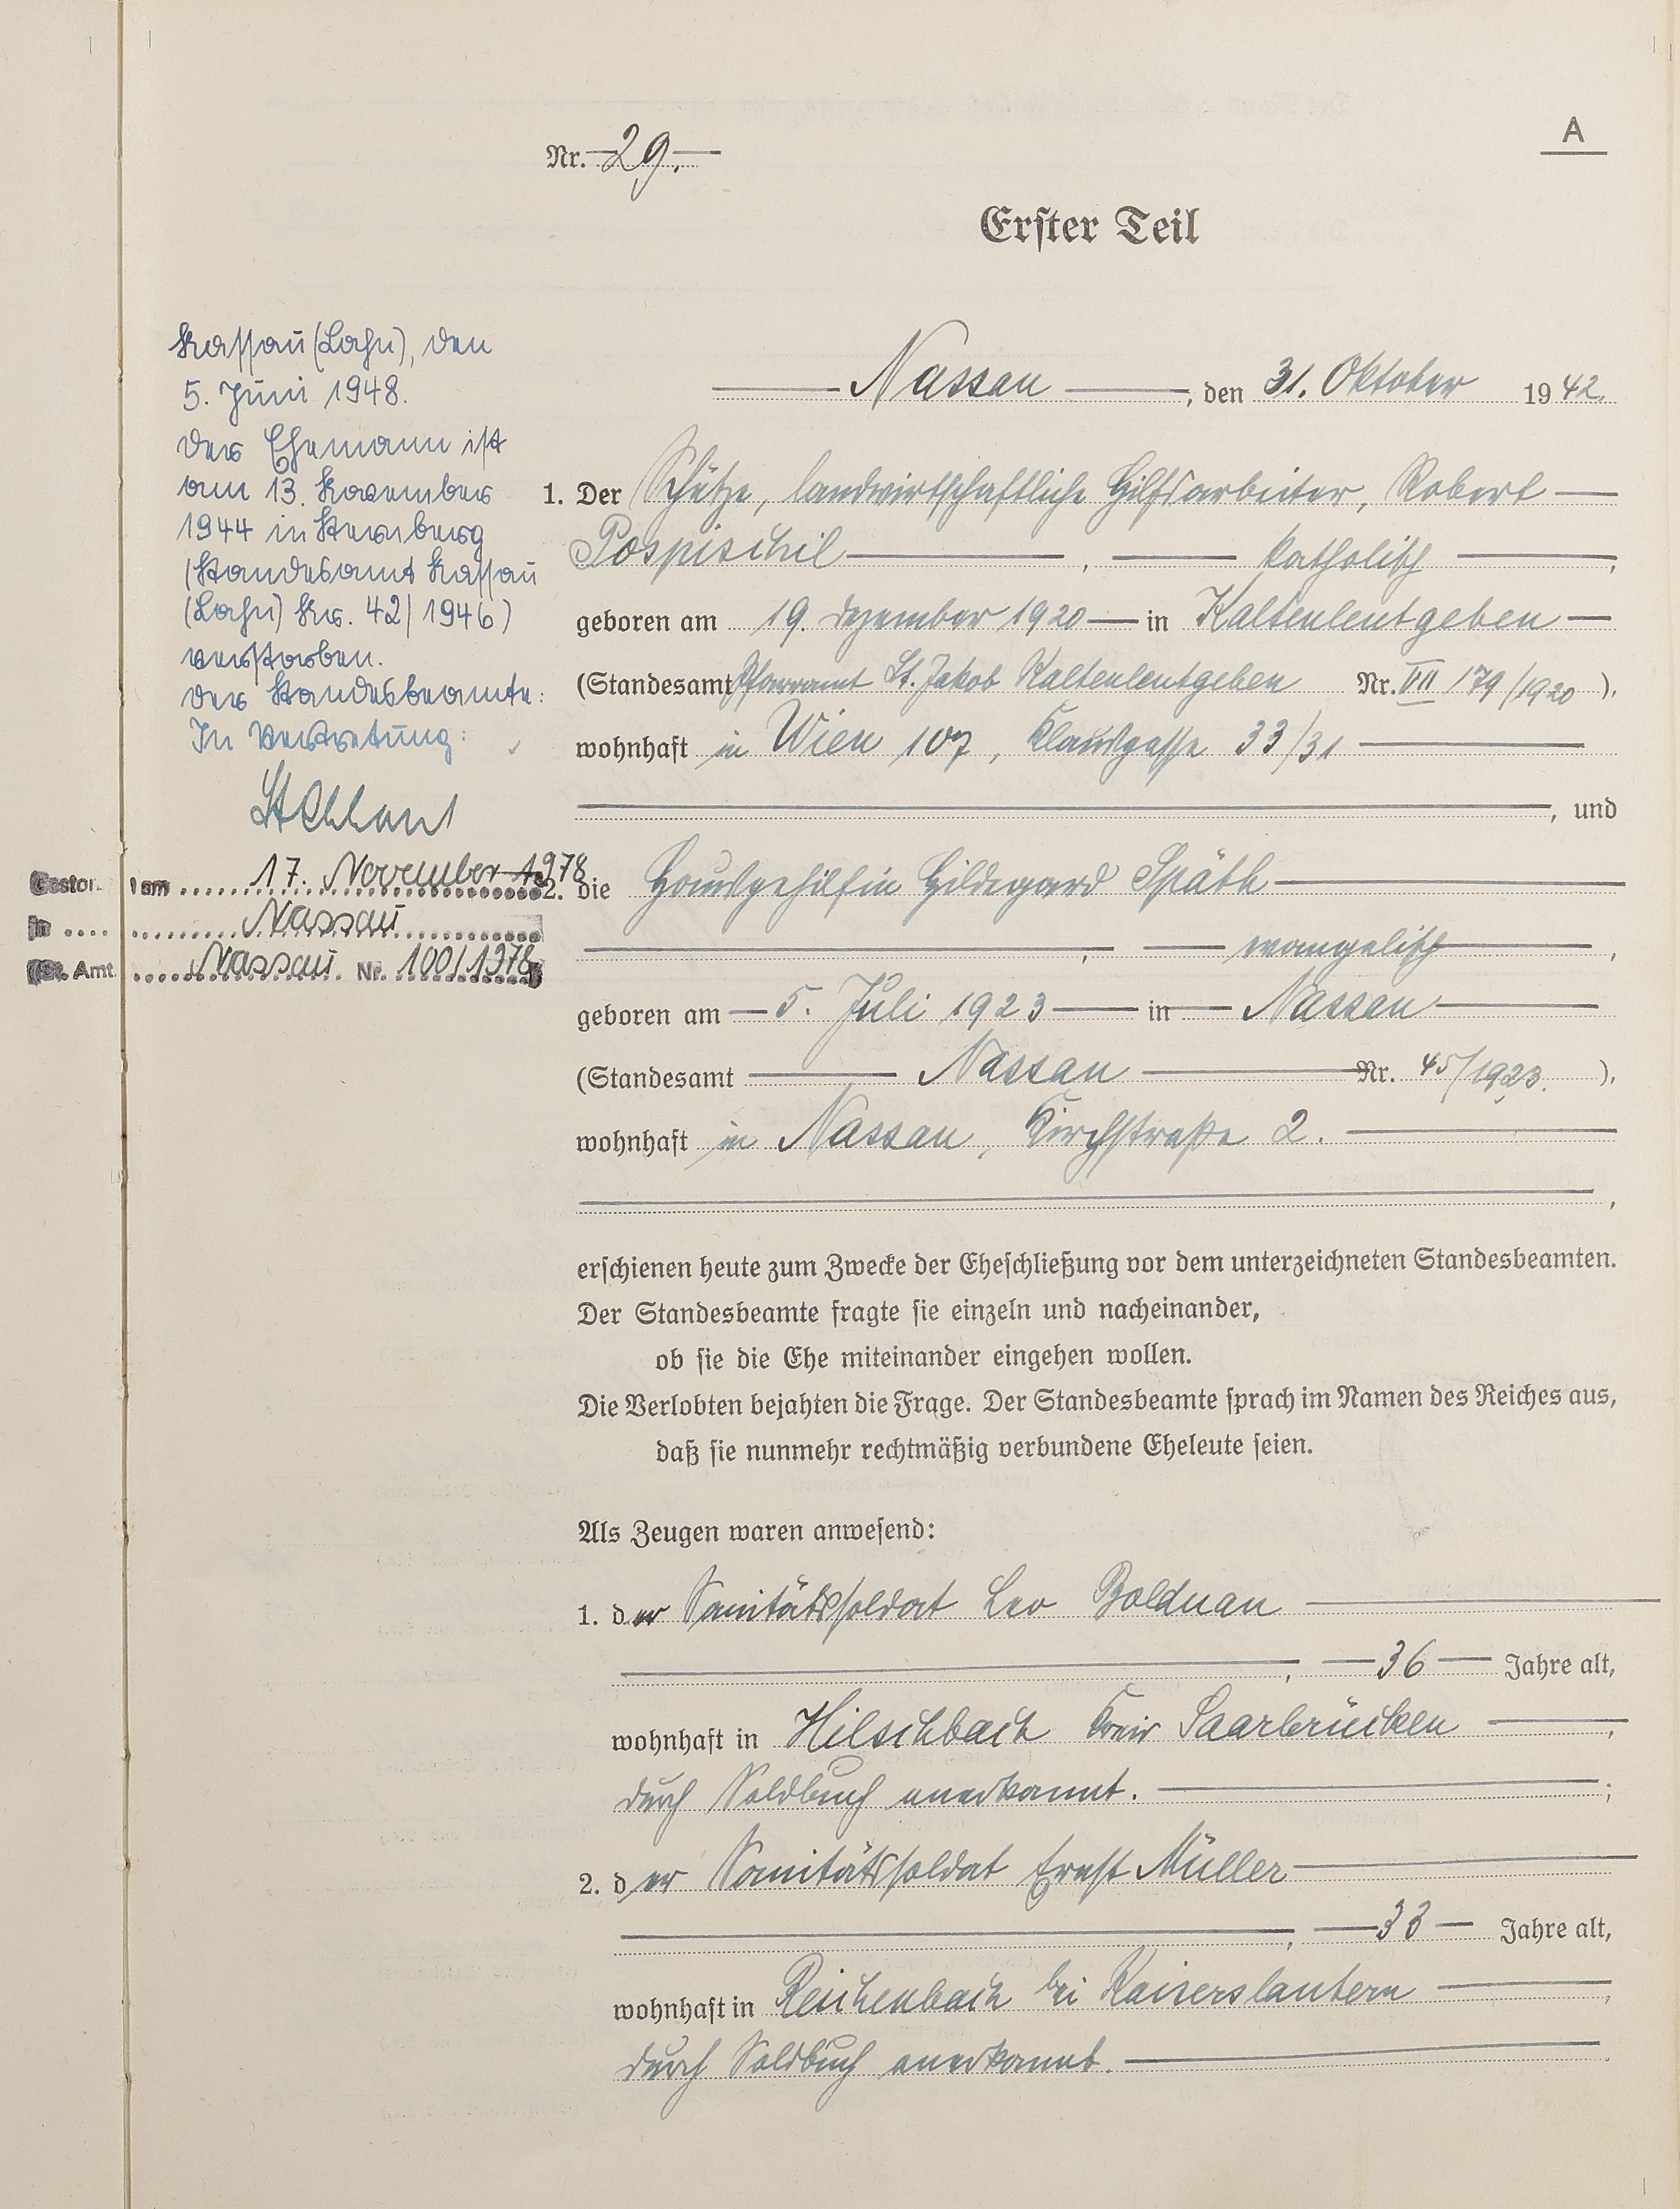 A
Nr. 29.
Erster Teil
Nassau, den 31. Oktober 1942.
1. Der Schütze, landwirtschaftliche Hilfsarbeiter, Robert
Pospischil, katholisch,
geboren am 19. Dezember 1920 in Kaltenleutgeben
(Standesamt Pfarramt St. Jakob Kaltenleutgeben Nr. VII 179/1920),
wohnhaft in Wien 107, 33/31
, und
2. die Hausgehilfin Hildegard Späth
, evangelisch,
geboren am 5. Juli 1923 in Nassau
(Standesamt Nassau Nr. 45/1923.),
wohnhaft in Nassau, Kirchstraße 2.
,
erschienen heute zum Zwecke der Eheschließung vor dem unterzeichneten Standesbeamten.
Der Standesbeamte fragte sie einzeln und nacheinander,
ob sie die Ehe miteinander eingehen wollen.
Die Verlobten bejahten die Frage. Der Standesbeamte sprach im Namen des Reiches aus,
daß sie nunmehr rechtmäßig verbundene Eheleute seien.
Als Zeugen waren anwesend:
1. der Sanitätssoldat Leo Boldnan
, 36 Jahre alt,
wohnhaft in Hilschbach Kreis Saarbrücken,
durch Soldbuch anerkannt. ;
2. der Sanitätssoldat Ernst Müller
, 33 Jahre alt,
wohnhaft in Reichenbach bei Kaiserslautern,
durch Soldbuch anerkannt.
Nassau (Lahn), den
5. Juni 1948.
Der Ehemann ist
am 13. November
1944 in Sternberg
(Standesamt Nassau
(Lahn) Nr. 42/1946)
verstorben.
Der Standesbeamte:
In Vertretung:
Gestor. am 17. November 1978
in Nassau
(St. Amt Nassau Nr. 100/1978)